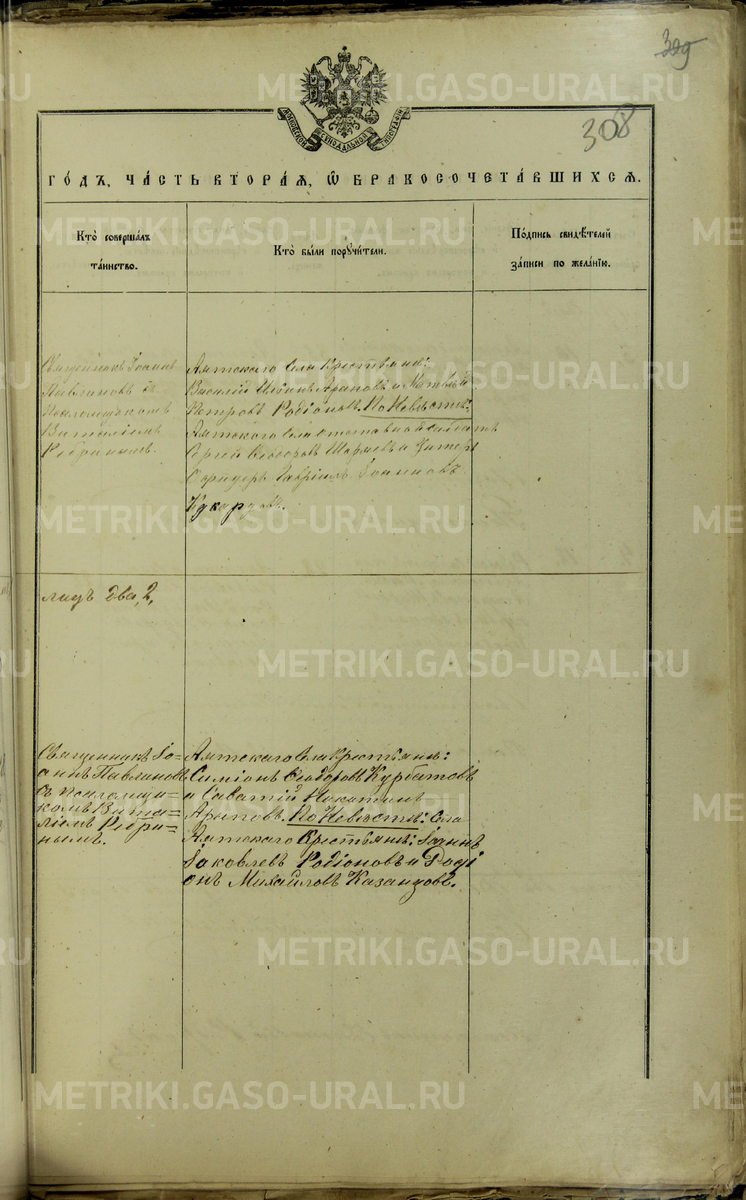 329
308
МОСКОВСКОЙ СѴНОДАЛЬНОЙ ТИПОГРАФІИ
ГО́ДЪ, ЧА́СТЬ ВТОРА́Я, Ѡ҆ БРАКОСОЧЕТА́ВШИХСЯ.
Кто̀ соверша́лъ
та́инство.
Кто̀ бы́ли порꙋчи́тели.
По́дпись свидѣ́телей
за́писи по жела́нїю.
Священникъ Іоаннъ
Павлиновъ съ
Псаломщикомъ
Виталіемъ
Аятскаго села Крестьяне:
Василій
Петровъ Родіоновъ. По Невѣстѣ:
Аятскаго села отставной солдатъ
Сергей Ѳеодоровъ и Унтеръ
Офицеръ Гавріилъ Іоанновъ
лицъ два, 2,
Священникъ Іо-
аннъ Павлиновъ
съ псаломщи-
комъ Вита-
ліемъ
нымъ.
Аятскаго села Крестьяне:
Симіонъ Ѳеодоровъ Курбатовъ
и Саватій Никитинъ
По Невѣстѣ: Села
Аятскаго Крестьяне: Іоаннъ
Іаковлевъ Родіоновъ и Родi
онъ Михайловъ Казанцовъ.
METRIKI.GASO-URAL.RU